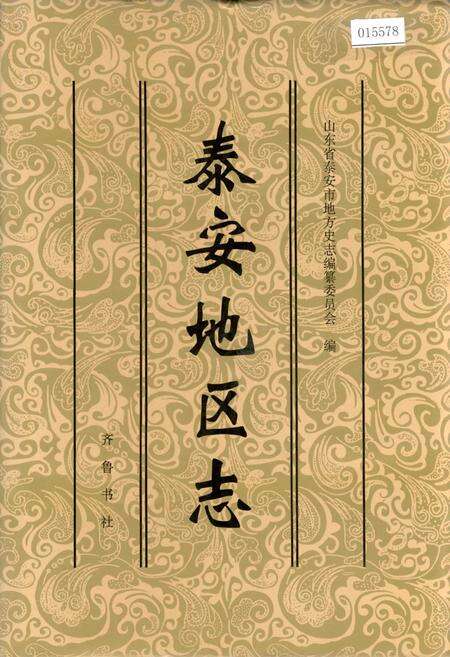 015578
山东省泰安市地方史志编纂委员会 编
泰安地区志
齐鲁书社